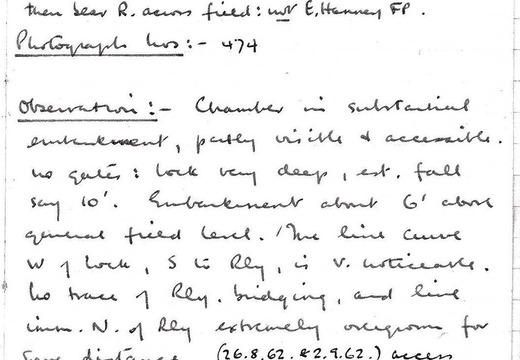 then bear R. across field: not E. Hanney FP.
Photographs Nos:- 474
Observation:- Chamber in substantial
embankment, partly visible & accessible.
No gates: lock very deep, est. fall
say 10'. Embankment about 6' above
general field level. The line curve
W of lock, S to Rly, is v. noticeable.
No trace of Rly. bridging, and line
imm. N. of Rly extremely overgrown for
some distance (26.8.62. & 2.9.62.) access